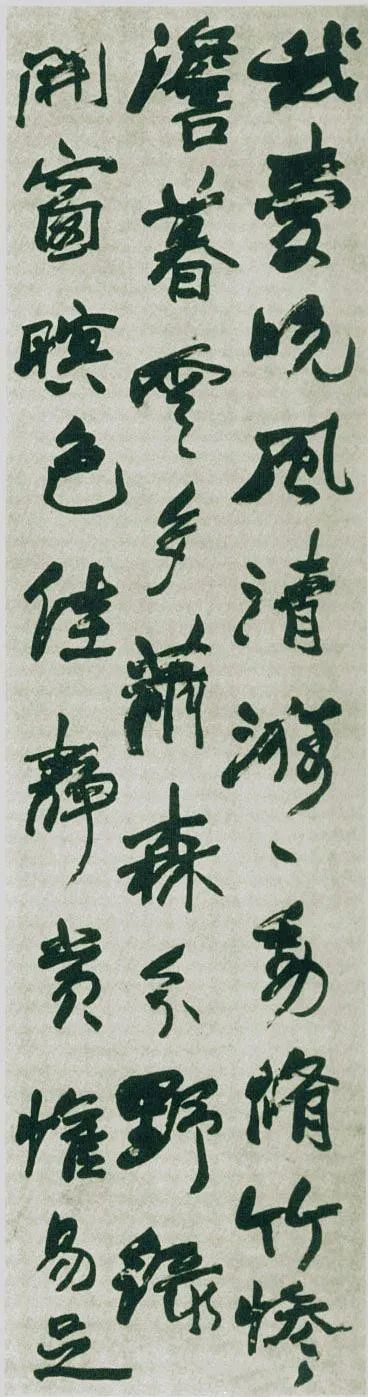 我愛晚風清動脩竹慘
澹暮雲多蕭森分野綠
開窗暝色佳靜賞懽易足